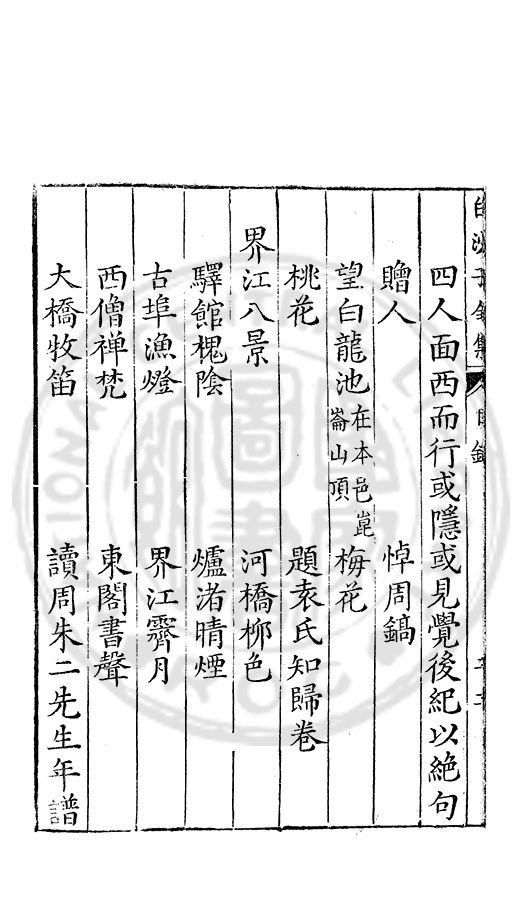 四人面西而行或隱或見覺後紀以絶句
贈人　悼周鎬
望白龍池在本邑崑崙山頂　梅花
桃花　題袁氏知歸卷
界江八景　河橋柳色
驛館槐陰　爐渚晴煙
古埠漁燈　界江霽月
西僧禅梵　東閣書聲
大橋牧笛　讀周朱二先生年譜